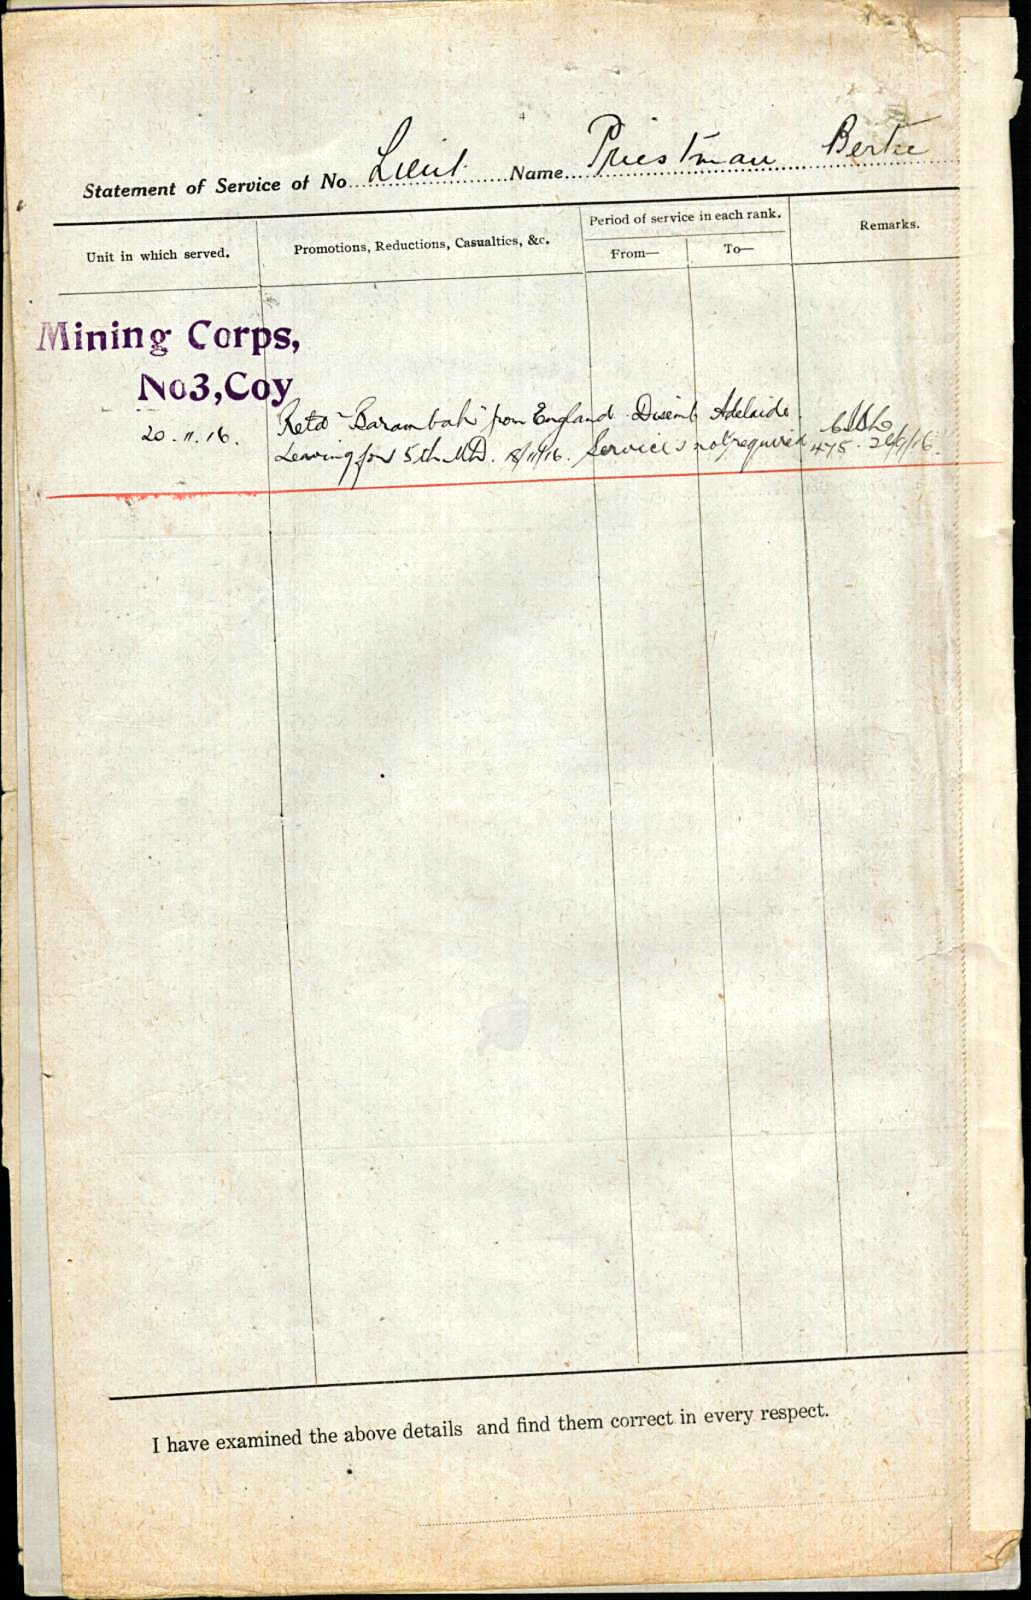 Statement of Service of No Lieut. Name Priestman Bertie
Unit in which served. Promotions, Reductions, Casualties, &c. Period of service in each rank. Remarks.
From— To—
Mining Corps,
No3, Coy
20.11.16. Retd "Barambah" from England Disemb Adelaide.
Leaving for 5th MD. 18/11/16. Services not required 475
I have examined the above details and find them correct in every respect.